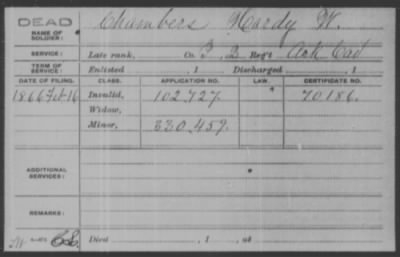 DEAD
NAME OF SOLDIER: Chambers Hardy W.
SERVICE: Late rank, Co. B, 2 Reg't Ark Cav
TERM OF SERVICE: Enlisted , 1 Discharged , 1
DATE OF FILING. CLASS. APPLICATION NO. LAW. CERTIFICATE NO.
1866 Feb 16 Invalid, 102.727. 70186.
Widow,
Minor, 330.459.
ADDITIONAL SERVICES:
REMARKS:
Died , 1 , at